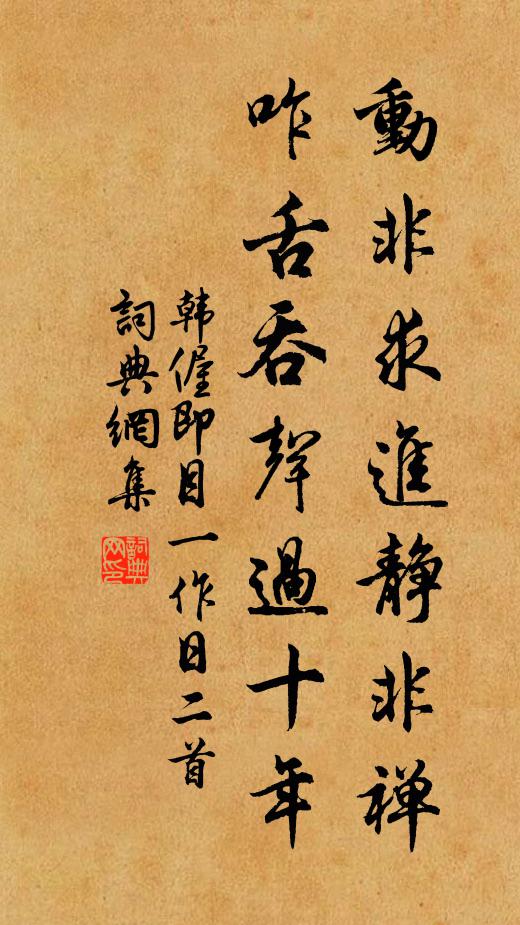 動非求進静非禅
咋舌吞聲過十年
韩偓即目一作日二首
詞典網集
詞典网印